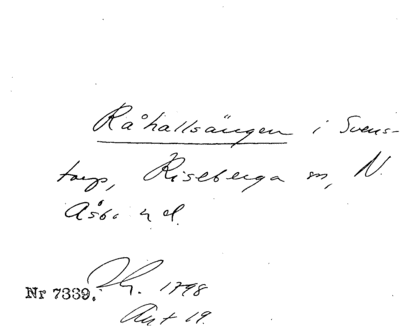 Råhallsängen i Svens-
torp, Riseberga sn, N.
Åsbo hd.
Nr 7339. 1798
Akt 19.